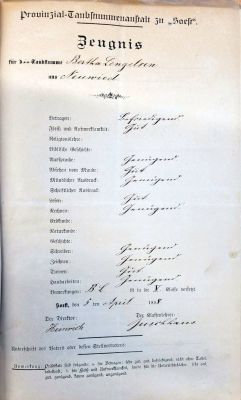 Provinzial-Taubstummenanstalt zu „Soest“.
Zeugnis
für d... Taubstumme Bertha Lengelsen
aus Neuwied
Betragen: Befriedigend
Fleiß und Aufmerksamkeit: Gut
Religionslehre:
Biblische Geschichte:
Aussprache: Genügend
Absehen vom Munde: Gut
Mündlicher Ausdruck: Genügend
Schriftlicher Ausdruck:
Lesen: Gut
Rechnen: Genügend
Erdkunde:
Naturkunde:
Geschichte:
Schreiben: Genügend
Zeichnen: Genügend
Turnen: Gut
Handarbeiten: Genügend
Bemerkungen: B. L. ist in die V Klasse versetzt
Soest, den 5 April
Der Direktor: Der Klassenlehrer:
Heinrich
Unterschrift des Vaters oder dessen Stellvertreters: